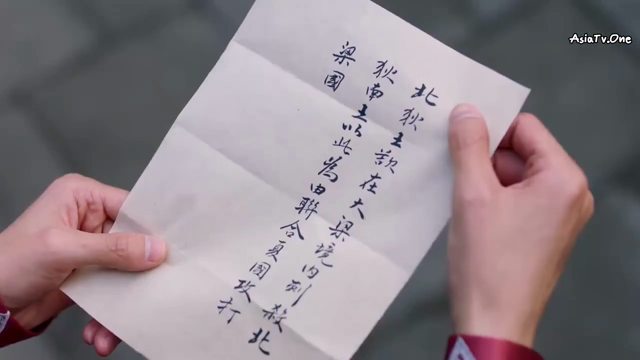 AsiaTv.One
北狄王欲在大梁境内刺殺北
狄南王以此為由聯合夏國攻打
梁國